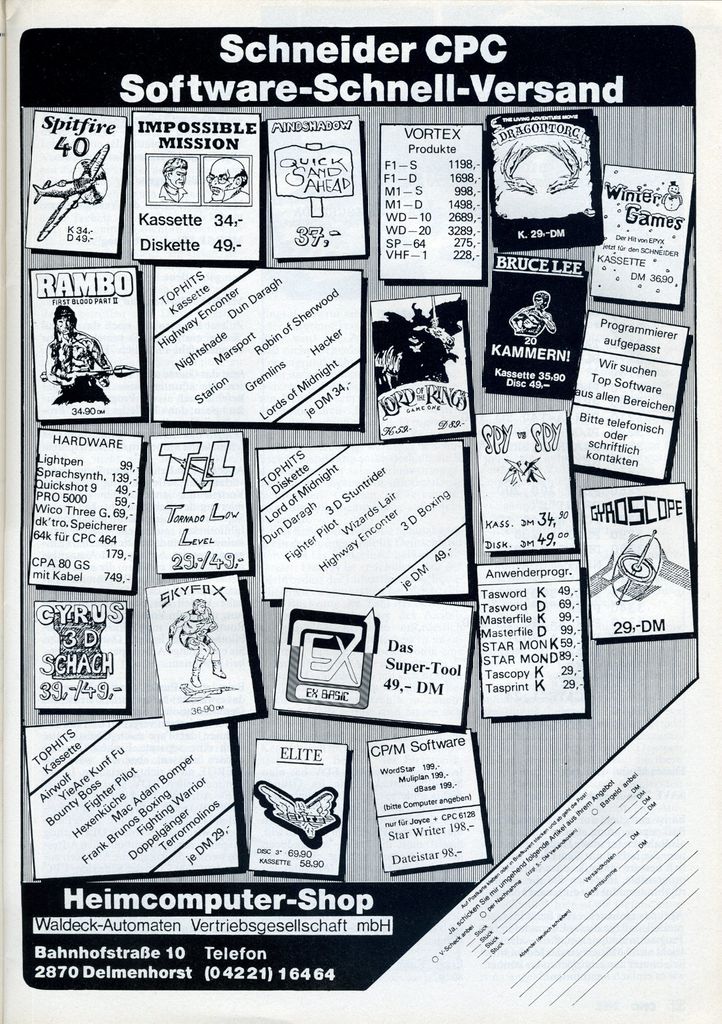 Schneider CPC
Software-Schnell-Versand
Spitfire
40
K 34.-
D 49.-
IMPOSSIBLE
MISSION
Kassette 34,-
Diskette 49,-
MINDSHADOW
QUICK
SAND
AHEAD
37,-
VORTEX
Produkte
F1-S 1198,-
F1-D 1698,-
M1-S 998,-
M1-D 1498,-
WD-10 2689,-
WD-20 3289,-
SP-64 275,-
VHF-1 228,-
THE LIVING ADVENTURE MOVIE
DRAGONTORC
K. 29,-DM
Winter
Games
Der Hit von EPYX
jetzt für den SCHNEIDER
KASSETTE
DM 36,90
RAMBO
FIRST BLOOD PART II
34.90 DM
TOPHITS
Kassette
Highway Enconter
Dun Daragh
Nightshade
Marsport
Robin of Sherwood
Starion
Gremlins
Hacker
Lords of Midnight
je DM 34,-
LORD OF THE RINGS
GAME ONE
K 59.- D 89.-
BRUCE LEE
20
KAMMERN!
Kassette 35,90
Disc 49,-
Programmierer
aufgepasst
Wir suchen
Top Software
aus allen Bereichen
Bitte telefonisch
oder
schriftlich
kontakten
HARDWARE
Lightpen 99,-
Sprachsynth. 139,-
Quickshot 9 49,-
PRO 5000 59,-
Wico Three G. 69,-
dk'tro. Speicherer
64k für CPC 464
179,-
CPA 80 GS
mit Kabel 749,-
TLL
TORNADO LOW
LEVEL
29.-/49,-
TOPHITS
Diskette
Lord of Midnight
Dun Daragh 3 D Stuntrider
Fighter Pilot Wizards Lair
Highway Enconter 3 D Boxing
je DM 49,-
SPY VS SPY
KASS. DM 34,90
DISK. DM 49,00
GYROSCOPE
29,-DM
CYRUS
3 D
SCHACH
39,-/49,-
SKYFOX
36·90 DM
EX
EX BASIC
Das
Super-Tool
49,- DM
Anwenderprogr.
Tasword K 49,-
Tasword D 69,-
Masterfile K 99,-
Masterfile D 99,-
STAR MON K 59,-
STAR MON D 89,-
Tascopy K 29,-
Tasprint K 29,-
TOPHITS
Kassette
Airwolf
YieAre Kunf Fu
Bounty Boss
Fighter Pilot
Hexenküche
Mac Adam Bomper
Frank Brunos Boxing
Fighting Warrior
Doppelgänger
Terrormolinos
je DM 29,-
ELITE
ELITE
DISC 3" 69.90
KASSETTE 58.90
CP/M Software
WordStar 199,-
Muliplan 199,-
dBase 199,-
(bitte Computer angeben)
nur für Joyce + CPC 6128
Star Writer 198,-
Dateistar 98,-
Ja, schicken Sie mir umgehend folgende Artikel aus Ihrem Angebot
V-Scheck anbei
per Nachnahme
Bargeld anbei
Stück DM
Stück DM
Stück DM
Stück DM
Versandkosten DM
Gesamtsumme DM
Absender (deutlich schreiben)
Heimcomputer-Shop
Waldeck-Automaten Vertriebsgesellschaft mbH
Bahnhofstraße 10 Telefon
2870 Delmenhorst (0 42 21) 1 64 64